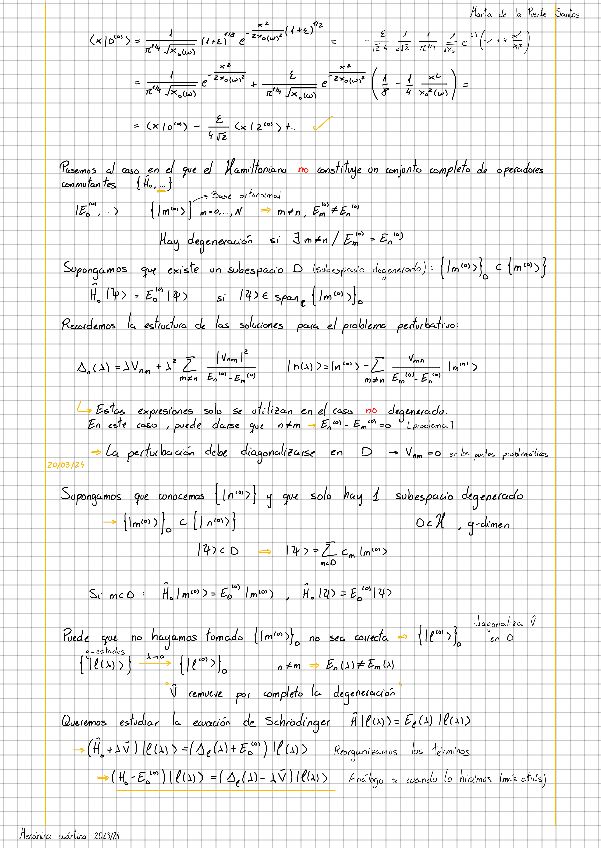 Marta de la Puente Santos
⟨x|0⁽⁰⁾⟩ = 1/(π^{1/4} √x₀(ω)) (1+ε)^{1/8} e^{-x²/(2x₀(ω)²) (1+ε)^{1/2}} =
= 1/(π^{1/4} √x₀(ω)) e^{-x²/(2x₀(ω)²)} + ε/(π^{1/4} √x₀(ω)) e^{-x²/(2x₀(ω)²)} (1/8 - 1/4 x²/x₀²(ω)) =
= ⟨x|0⁽⁰⁾⟩ - ε/(4√2) ⟨x|2⁽⁰⁾⟩ + .. ✓
Pasemos al caso en el que el Hamiltoniano no constituye un conjunto completo de operadores
conmutantes {Ĥ₀, ...}
→ Base ortonormal
|E₀⁽⁰⁾, ..⟩ {|m⁽⁰⁾⟩} m=0,...,N → m≠n, Eₘ⁽⁰⁾≠Eₙ⁽⁰⁾
Hay degeneración si ∃ m≠n / Eₘ⁽⁰⁾ = Eₙ⁽⁰⁾
Supongamos que existe un subespacio D (subespacio degenerado) : {|m⁽⁰⁾⟩}_D ⊂ {m⁽⁰⁾⟩}
Ĥ₀ |ψ⟩ = E_D⁽⁰⁾ |ψ⟩ si |ψ⟩ ∈ span_ℂ {|m⁽⁰⁾⟩}_D
Recordemos la estructura de las soluciones para el problema perturbativo:
Δₙ(λ) = λVₙₘ + λ² Σ_{m≠n} |Vₙₘ|²/(Eₙ⁽⁰⁾-Eₘ⁽⁰⁾) |n(λ)⟩ = |n⁽⁰⁾⟩ - Σ_{m≠n} Vₘₙ/(Eₘ⁽⁰⁾-Eₙ⁽⁰⁾) |m⁽⁰⁾⟩
↳ Estas expresiones solo se utilizan en el caso no degenerado.
En este caso, puede darse que n≠m → Eₙ⁽⁰⁾-Eₘ⁽⁰⁾=0 [problema]
→ La perturbación debe diagonalizarse en D → Vₙₘ=0 en los puntos problemáticos
20/03/24
Supongamos que conocemos {|n⁽⁰⁾⟩} y que solo hay 1 subespacio degenerado
→ {|m⁽⁰⁾⟩} ⊂ {|n⁽⁰⁾⟩} D⊂ℋ, g-dimen
|ψ⟩ ⊂ D → |ψ⟩ = Σ_{m⊂D} cₘ |m⁽⁰⁾⟩
Si m⊂D : Ĥ₀|m⁽⁰⁾⟩ = E_D⁽⁰⁾|m⁽⁰⁾⟩, Ĥ₀|ψ⟩ = E_D⁽⁰⁾|ψ⟩
Puede que no hayamos tomado {|m⁽⁰⁾⟩}_D no sea correcta → {|l⁽⁰⁾⟩}_D diagonaliza V̂ en D
e-estados
{|l(λ)⟩} λ→0 {|l⁽⁰⁾⟩}_D n≠m → Eₙ(λ)≠Eₘ(λ)
V̂ remueve por completo la degeneración
Queremos estudiar la ecuación de Schrödinger Ĥ|l(λ)⟩ = E_l(λ)|l(λ)⟩
→ (Ĥ₀+λV̂)|l(λ)⟩ = (Δ_l(λ)+E_D⁽⁰⁾)|l(λ)⟩ Reorganizamos los términos
→ (H₀-E_D⁽⁰⁾)|l(λ)⟩ = (Δ_l(λ)-λV̂)|l(λ)⟩ Análogo a cuando lo hicimos (más atrás)
Mecánica cuántica 2023/24